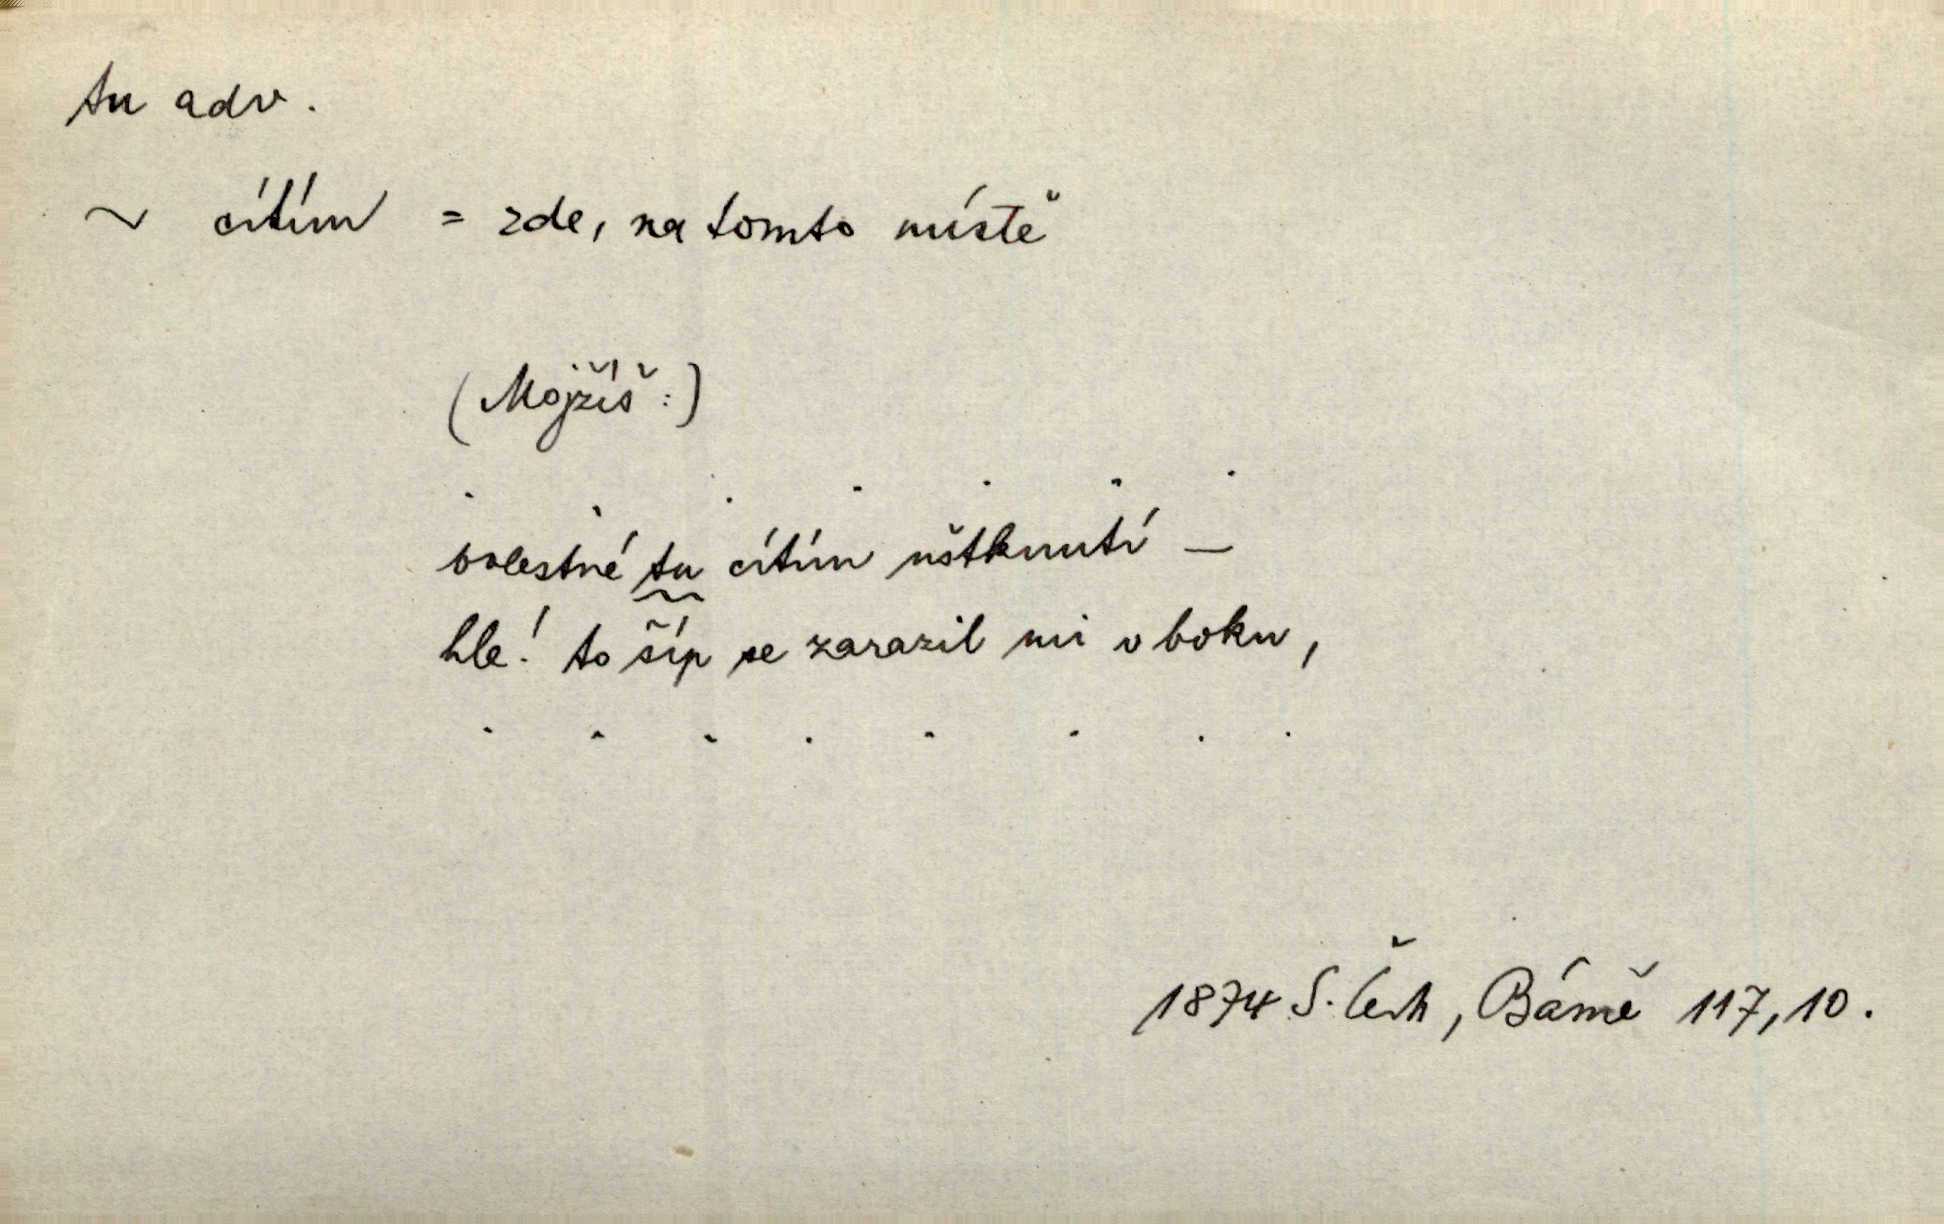 tu adv.
~ cítím = zde, na tomto místě
(Mojžíš:)
. . . . . . .
bolestné tu cítím uštknutí —
hle! to šíp se zarazil mi v boku,
. . . . . . . .
1874 S. Čech, Básně 117, 10.